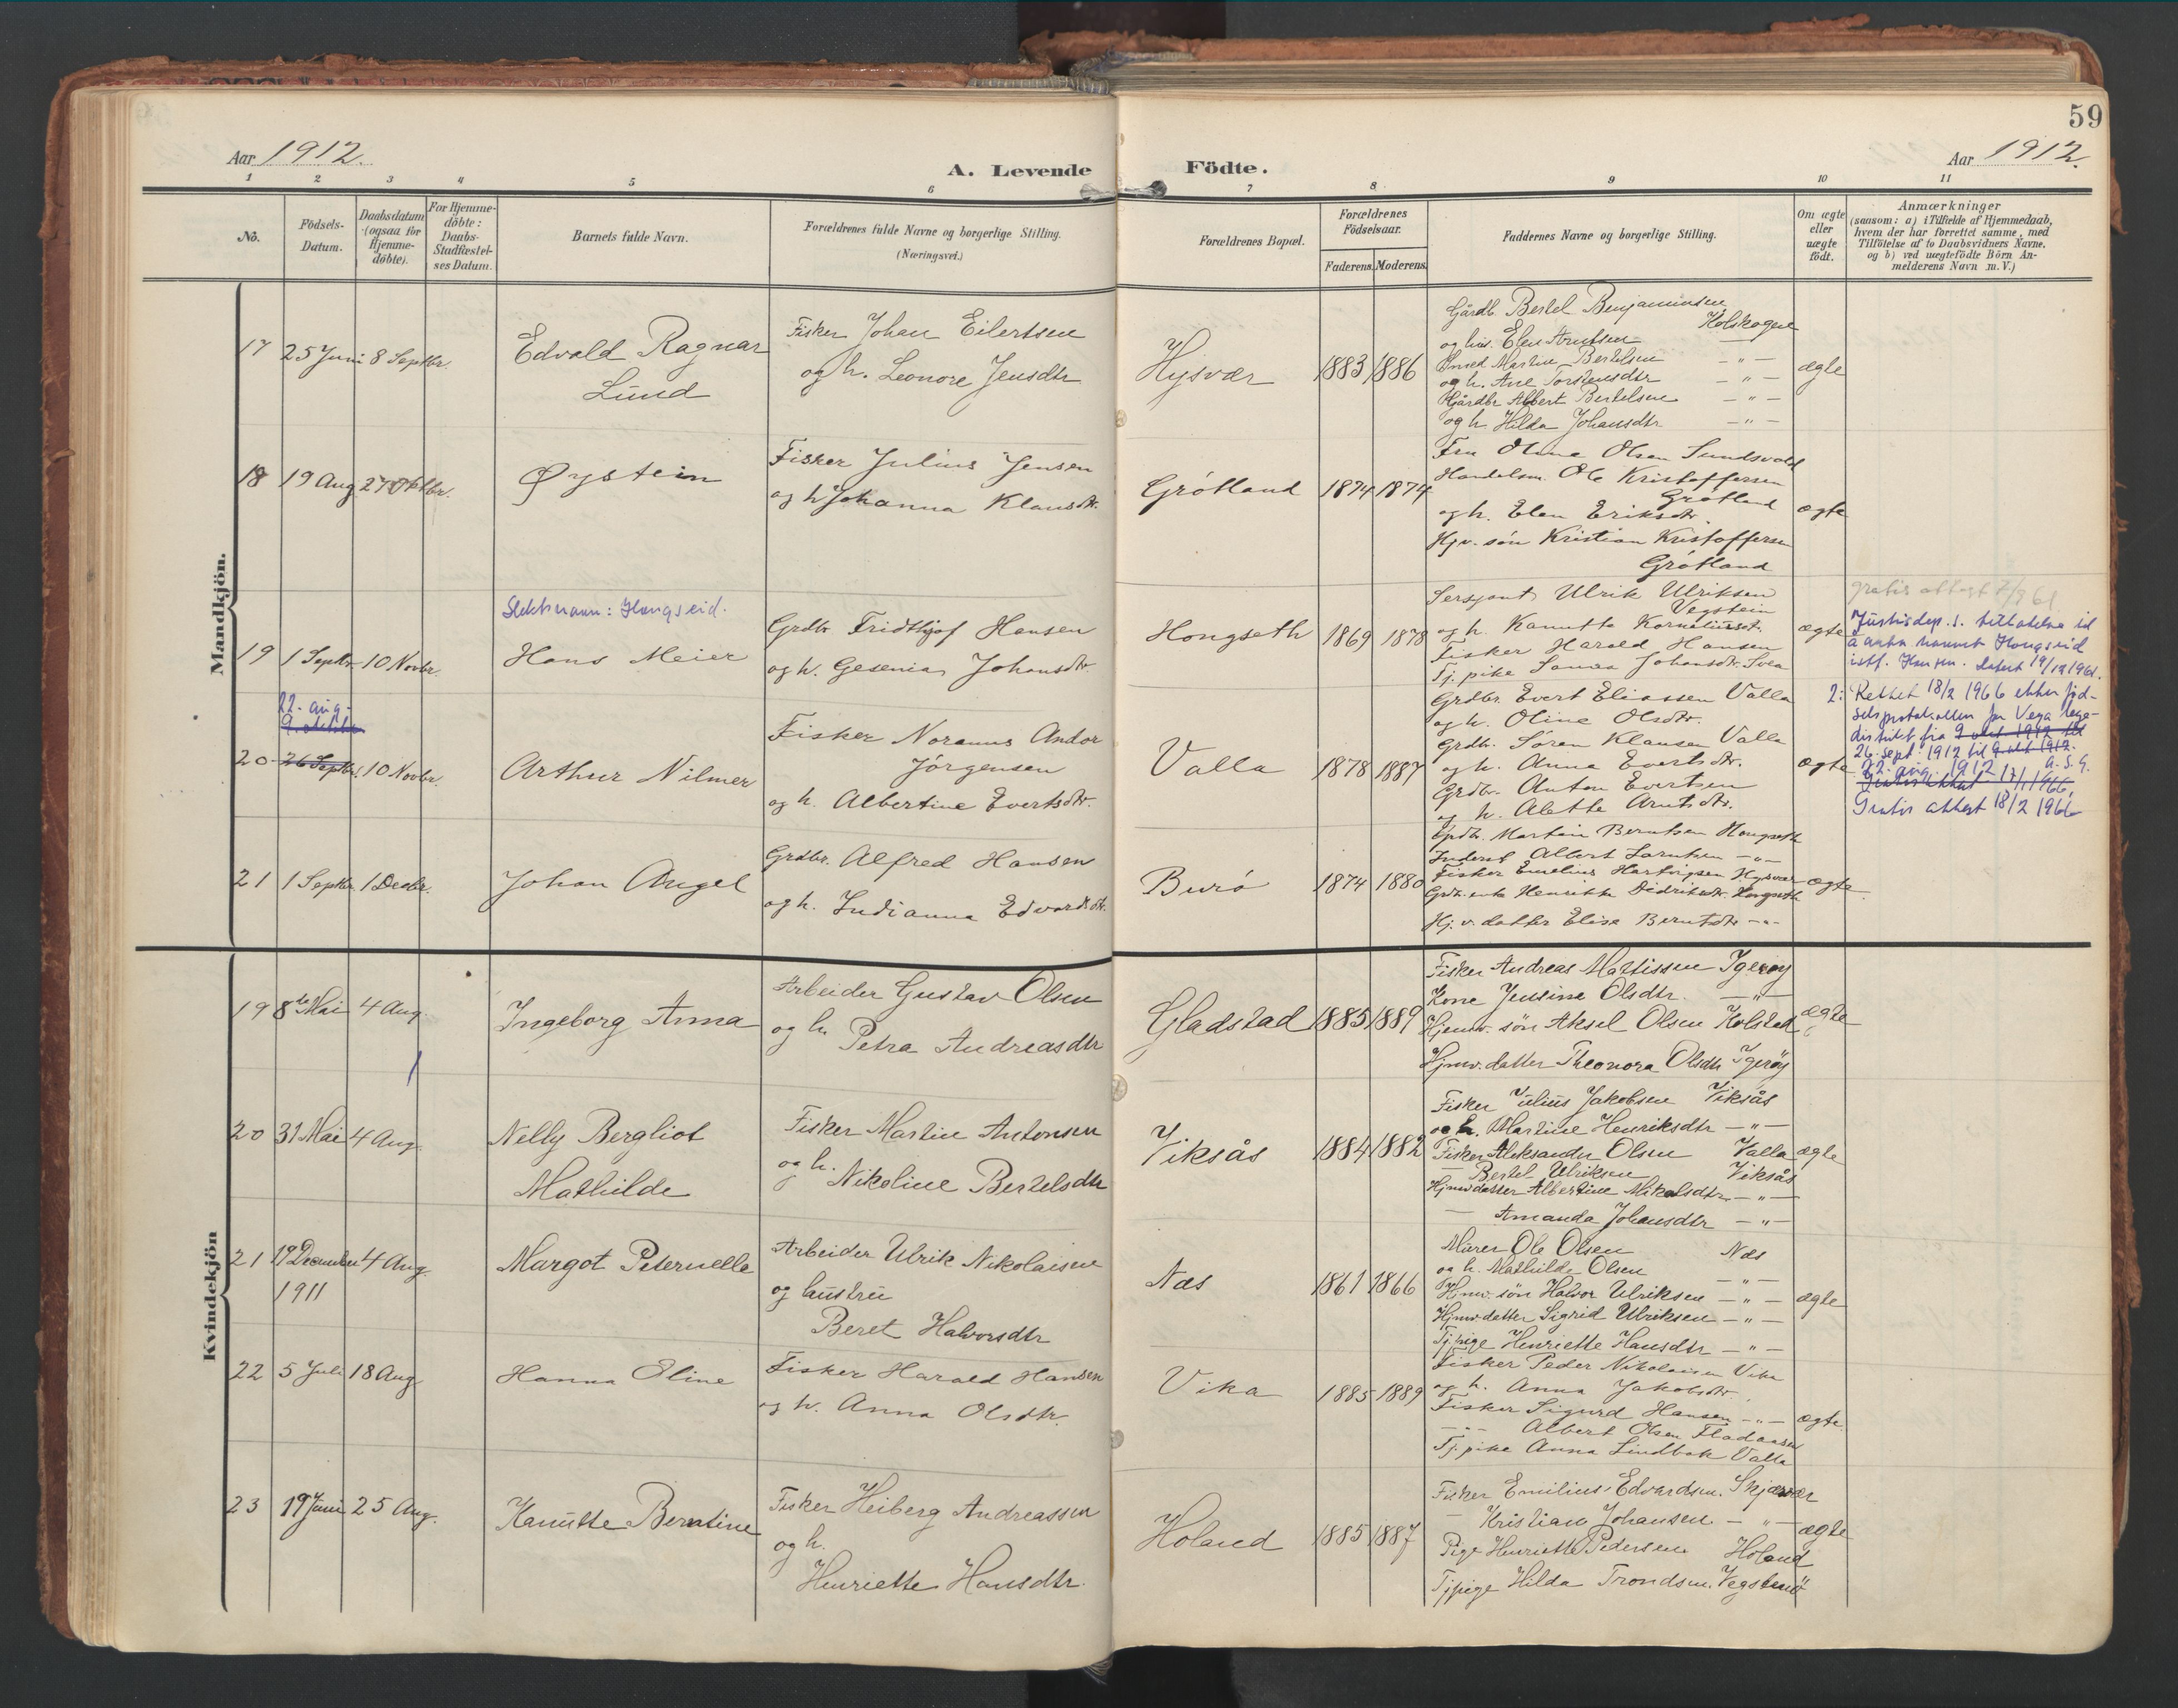 59
Aar 1912.
A. Levende Födte.
Aar 1912.
1 2 3 4 5 6 7 8 9 10 11
No.
Födsels-
Datum.
Daabsdatum
(ogsaa for
Hjemme-
döbte).
For Hjemme-
döbte:
Daabs-
Stadfæstel-
ses Datum.
Barnets fulde Navn.
Forældrenes fulde Navne og borgerlige Stilling.
(Næringsvei.)
Forældrenes Bopæl.
Forældrenes
Födselsaar.
Faderens. Moderens.
Faddernes Navne og borgerlige Stilling.
Om ægte
eller
uægte
födt.
Anmærkninger
(saasom: a) i Tilfælde af Hjemmedaab,
hvem der har forrettet samme, med
Tilföielse af to Daabsvidners Navne.
og b) ved uægtefödte Börn An-
melderens Navn m. V.)
Mandkjön.
17 25 Juni 8 Septbr.
Edvald Ragnar
Lund
Fisker Johan Eilertsen
og h. Leonore Jensdtr
Hysvær
1883 1886
Gårdb. Bertel Benjaminsen
Holskogen
og hus. Elen Arntsen
Inred Martin Bertelsen - " -
og h. Ane Torstensdtr - " -
Gårdbr Albert Bertelsen - " -
og h. Hilda Johansdtr - " -
ægte
18 19 Aug 27 Oktbr.
Øystein
Fisker Julius Jensen
og h Johanna Klausdtr.
Grötland
1874 1874
Fru Oline Olsen Sundsvold
Handelsm. Ole Kristoffersen
Grötland
og h. Elen Eriksdtr.
Hjv. sön Kristian Kristoffersen
Grötland
ægte
Slektsnavn: Hongseid.
19 1 Septbr 10 Novbr.
Hans Meier
Grdbr Fridthjof Hansen
og h. Gesenia Johansdtr.
Hongseth
1869 1878
Sersjant Ulrik Ulriksen
Vegstein
og h. Kanutta Korneliusdtr.
Fisker Harald Hansen
Tj. pike Sanna Johansdtr. Svea
ægte
gratis attest 7/8 61
Justisdep.s. tillatelse til
å anta navnet Hongseid
istf. Hansen. Datert 19/12 1961.
22. aug.
9. oktbr
20 26 Septbr. 10 Novbr.
Arthur Nilmer
Fisker Noranus Andor
Jørgensen
og h. Albertine Evertsdtr.
Valla
1878 1887
Grdbr. Evert Eliassen Valla
og h. Oline Olsdtr.
Grdbr. Søren Klausen Valla
og h. Anna Evertsdtr.
Grdbr. Anton Evertsen
og h. Alette Arntsdtr.
ægte
2: Rettet 18/2 1966 etter fød-
selsprotokollen for Vega lege-
distrikt fra 9 okt. 1912 til
26. sept. 1912 til 9 okt 1912.
22. aug. 1912 A.S.G.
17/1 1966,
Gratis attest 18/2 1966
21 1 Septbr. 1 Decbr.
Johan Angel
Grdbr. Alfred Hansen
og h. Indianna Edvardsdtr.
Burö
1874 1880
Grdbr. Martin Berntsen Hongseth
Inderst Albert Larntsen - " -
Fisker Emelius Hartvigsen Hysvær
Grdbr. enke Henrikka Didriksdtr. Hongseth
Hj. v. datter Elisa Berntsdtr - " -
ægte
Kvindekjön
19 8de Mai 4 Aug.
Ingeborg Anna
Arbeider Gustav Olsen
og h. Petra Andreasdtr
Gladstad
1885 1889
Fisker Andreas Mattissen Igerøy
Kone Jensine Olsdtr. - " -
Hjemv. sön Aksel Olsen Kolstad
Hjmv. datter Theonora Olsdtr Igeröy
ægte
20 31 Mai 4 Aug.
Nelly Bergliot
Mathilde
Fisker Martin Antonsen
og h. Nikoline Bertelsdtr
Viksås
1884 1882
Fisker Julius Jakobsen Viksås
og h. Martine Henriksdtr - " -
Fisker Aleksander Olsen Valla
- Bertel Ulriksen Viksås
Hjmv datter Albertine Nikolsdtr - " -
- Amanda Johansdtr - " -
ægte
21 19 December 4 Aug.
1911
Margot Peternelle
Arbeider Ulrik Nikolaisen
og hustru
Beret Halvorsdtr
Næs
1861 1866
Murer Ole Olsen Næs
og h. Mathilde Olsen - " -
Hmv. sön Halvor Ulriksen - " -
Hjmv datter Sigrid Ulriksen - " -
Tjpige Henriette Hansdtr - " -
ægte
22 5 Juli 18 Aug
Hanna Eline
Fisker Harald Hansen
og h. Anna Olsdtr.
Vika
1885 1889
Fisker Peder Nikolaisen Vika
og h. Anna Jakobsdtr.
Fisker Sigurd Hansen - " -
- - Albert Olsen Fladaasen
Tj. pike Anna Lindbak Valla
ægte
23 19 Juni 25 Aug.
Kanutte Berntine
Fisker Heiberg Andreassen
og h.
Henriette Hansdtr.
Holand
1885 1887
Fisker Emilius Edvardsen. Skjærvær
- Kristian Johansen - " -
Pige Henriette Pedersen Holand
Tjpige Hilda Trondsen. Vegstenö
ægte